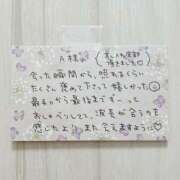 A様
(差し入れ笑顔
頂きました♡)
会った瞬間から、照れるくらい
たくさん褒めて下さって嬉しかった☺
最初から最後まで ずーって
おしゃべりしてて、波長が合うのを
感じたよ♪ また会えますように♡